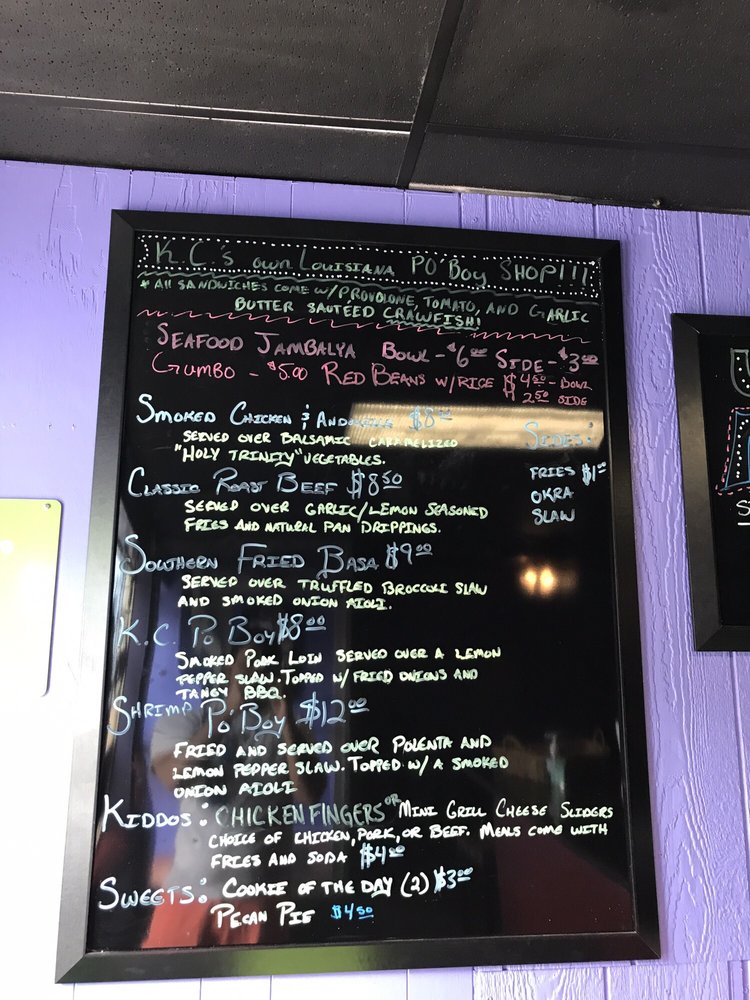 K.C.'s own Louisiana PO'Boy SHOP!!!
* All SANDWICHES COME W/PROVOLONE, TOMATO, AND GARLIC
BUTTER SAUTEED CRAWFISH!
SEAFOOD JAMBALYA BOWL - $6.00 SIDE - $3.00
GUMBO - $5.00 RED BEANS W/RICE $4.50 - BOWL
2.50 SIDE
SMOKED CHICKEN & ANDOUILLE $8.00
SERVED OVER BALSAMIC CARAMELIZED
"HOLY TRINITY" VEGETABLES.
SIDES:
FRIES $1.00
OKRA
SLAW
CLASSIC ROAST BEEF $8.50
SERVED OVER GARLIC/LEMON SEASONED
FRIES AND NATURAL PAN DRIPPINGS.
SOUTHERN FRIED BASA $9.00
SERVED OVER TRUFFLED BROCCOLI SLAW
AND SMOKED ONION AIOLI.
K.C. PO BOY $8.00
SMOKED PORK LOIN SERVED OVER A LEMON
PEPPER SLAW. TOPPED W/ FRIED ONIONS AND
TANGY BBQ.
SHRIMP PO'BOY $12.00
FRIED AND SERVED OVER POLENTA AND
LEMON PEPPER SLAW. TOPPED W/ A SMOKED
ONION AIOLI
KIDDOS: CHICKEN FINGERS OR MINI GRILL CHEESE SLIDERS
CHOICE OF CHICKEN, PORK, OR BEEF. MEALS COME WITH
FRIES AND SODA $4.00
SWEETS: COOKIE OF THE DAY (2) $3.00
PECAN PIE $4.50